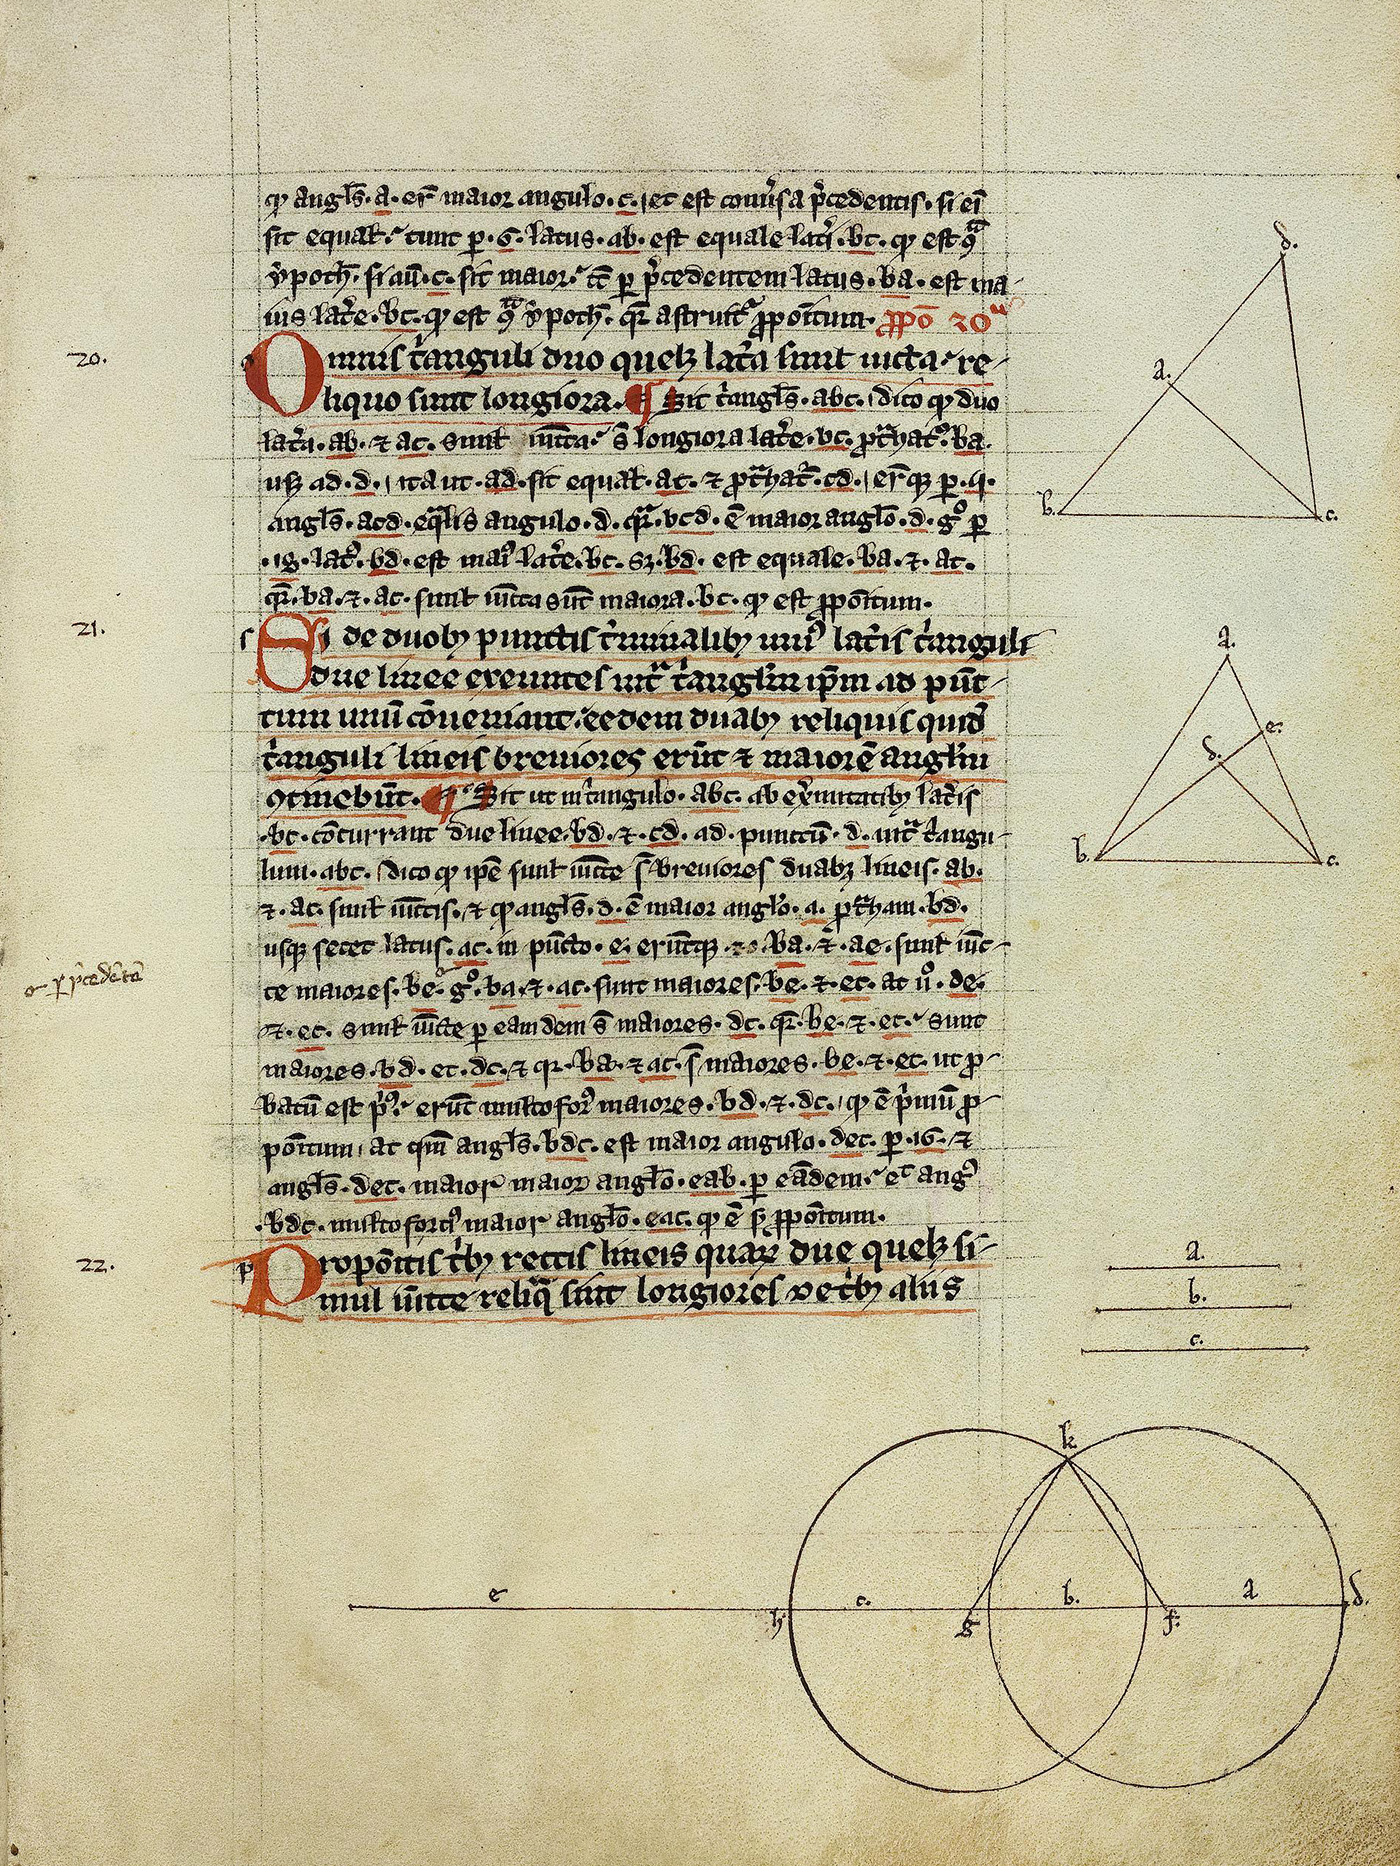 ꝙ angl̄s. a. er̄ maior angulo. c. et est conu̾sa p̄cedentis. si eī
sit equal̄. tunc p. 5. latus. ab. est equale lat̾i. bc. ꝙ est
ypoth̄. si aū. c. sit maior. tc̄ ꝑ p̄cedentem latus. ba. est ma-
ius lat̾e. bc. ꝙ est ypoth̄. qr̄ astruit̾ ꝓpōitum. ꝓpō 20ᵃ
20.
Omnis t̾anguli duo quelꝫ lat̾a simul iūcta re-
liquo sunt longiora. Sit t̾angl̄s. abc. dico ꝙ duo
lat̾a. ab. ⁊ ac. simul iūcta s̄ longiora lat̾e. bc. ba.
usqꝫ ad. d. ita ut. ad. sit equal̄. ac. ⁊ cd. er̄ qꝫ ꝑ.
angl̄s. acd. eq̄lis angulo. d. qr̄. bcd. ē maior angl̄o. d. gͦ ꝑ
.19. lat̾. bd. est mai᾽ lat̾e. bc. sꝫ. bd. est equale. ba. ⁊. ac.
qr̄. ba. ⁊. ac. simul iūcta sūt maiora. bc. ꝙ est ꝓpōitum.
21.
s
Si de duobꝫ punctis t̾minalibꝫ uni᾽ lat̾is t̾anguli
due linee exeuntes int̾ t̾angl̄m ip̄m ad pūc-
tum unū cōueniant. eedem duabꝫ reliquis quid̾
t̾anguli lineis breuiores erūt ⁊ maiorē angl̄m
ꝯtinebūt. Sit ut in t̾angulo. abc. ab ext̾mitatibꝫ lat̾is
.bc. cōcurrant due linee. bd. ⁊. cd. ad. punctū. d. int̾ t̾angu-
lum. abc. dico ꝙ ip̄e simul iūcte s̄ breuiores duabꝫ lineis. ab.
⁊. ac. simul iūctis. ⁊ ꝙ angl̄s. d. ē maior angl̄o. a. bd.
usqꝫ secet latus. ac. in pūcto. e. erūtqꝫ 20. ba. ⁊. ae. simul iūc-
ꝑ p̄cedētē
te maiores. be. gͦ. ba. ⁊. ac. sunt maiores. be. ⁊. ec. at u̾ͦ. de.
⁊. ec. simul iūcte ꝑ eamdem s̄ maiores. dc. qr̄. be. ⁊. ec. sunt
maiores. bd. et. dc. ⁊ qr. ba. ⁊ ac. s̄ maiores. be. ⁊. ec. ut ꝓ-
batū est p̾᾽. erūt multo for̾ maiores. bd. ⁊. dc. ꝙ ē p̾mū ꝓ-
pōitum, at qm̄ angl̄s. bdc. est maior angulo. dec. ꝑ. 16. ⁊
angl̄s. dec. maior maior angl̄o. eab. ꝑ eādem. et ang̾
.bdc. multo forci᾽ maior angl̄o. eac. ꝙ ē ꝓpōitum.
22.
p
Propōitis t̾bꝫ rectis lineis quaꝝ due quelꝫ si-
mul iūcte reliq̄ sint longiores de t̾bꝫ aliis
d.
a.
b.
c.
a.
e.
d.
b.
c.
a.
b.
c.
k
e
h
c.
g
b.
f.
a
d.